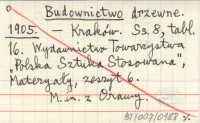 Budownictwo drzewne.
1905. — Kraków. Ss. 8, tabl.
16. Wydawnictwo Towarzystwa
"Polska Sztuka Stosowana",
Materyały, zeszyt 6.
M. in. z Orawy.